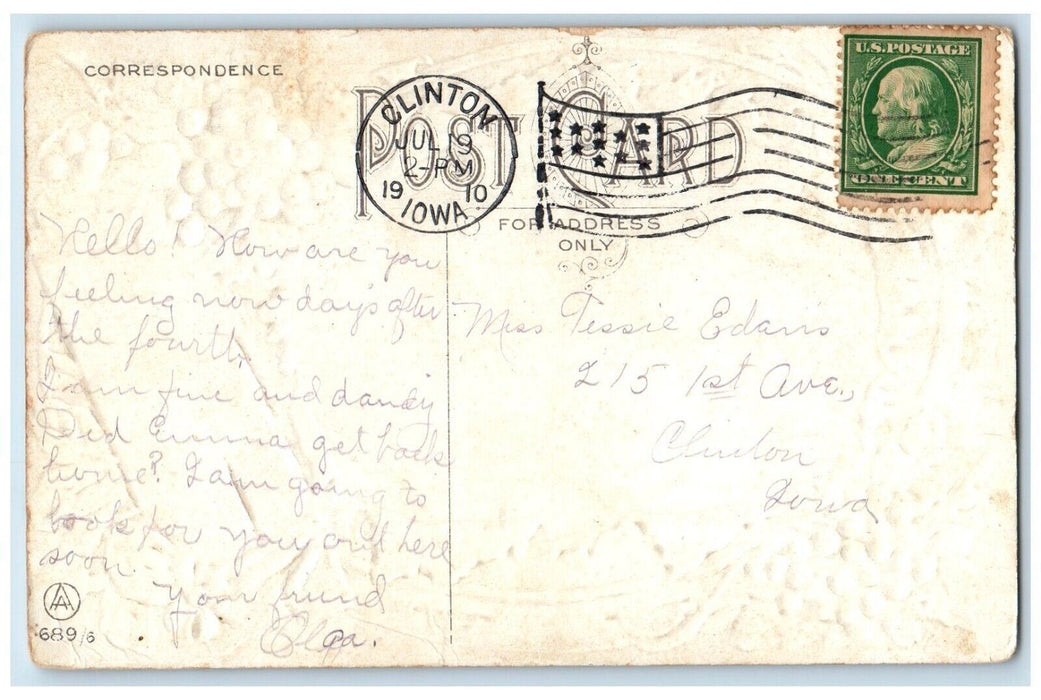 CORRESPONDENCE
POST CARD
FOR ADDRESS
ONLY
CLINTON
JUL 19
2-PM
19 10
IOWA
U.S. POSTAGE
ONE CENT
Hello! How are you
feeling now day's after
the fourth,
I am fine and dandy
Did Emma get back
home? I am going to
look for you out here
soon
Your friend
Olga.
Miss Tessie Edans
215 1st Ave.,
Clinton
Iowa
AA
689/6